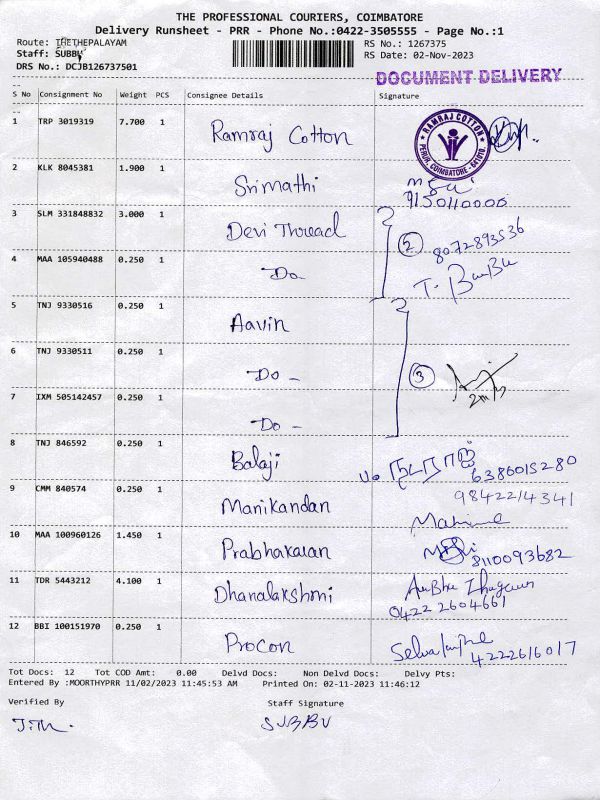 THE PROFESSIONAL COURIERS, COIMBATORE
Delivery Runsheet - PRR - Phone No.:0422-3505555 - Page No.:1
Route: THETHEPALAYAM RS No.: 1267375
Staff: SUBBU RS Date: 02-Nov-2023
DRS No.: DCJB126737501
DOCUMENT DELIVERY
S No Consignment No Weight PCS Consignee Details Signature
1 TRP 3019319 7.700 1 Ramraj Cotton RAMRAJ COTTON PERUR, COIMBATORE - 641010.
2 KLK 8045381 1.900 1 Srimathi 9150110000
3 SLM 331848832 3.000 1 Devi Thread 2 8072893536
4 MAA 105940488 0.250 1 Do T. Babu
5 TNJ 9330516 0.250 1 Aavin
6 TNJ 9330511 0.250 1 Do - 3
7 IXM 505142457 0.250 1 Do -
8 TNJ 846592 0.250 1 Balaji 6386015280
9 CMM 840574 0.250 1 Manikandan 9842214341
10 MAA 100960126 1.450 1 Prabhakaran 8110093682
11 TDR 5443212 4.100 1 Dhanalakshmi 0422 2604661
12 BBI 100151970 0.250 1 Procon 4222616017
Tot Docs: 12 Tot COD Amt: 0.00 Delvd Docs: Non Delvd Docs: Delvy Pts:
Entered By :MOORTHYPRR 11/02/2023 11:45:53 AM Printed On: 02-11-2023 11:46:12
Verified By Staff Signature
SUBBU